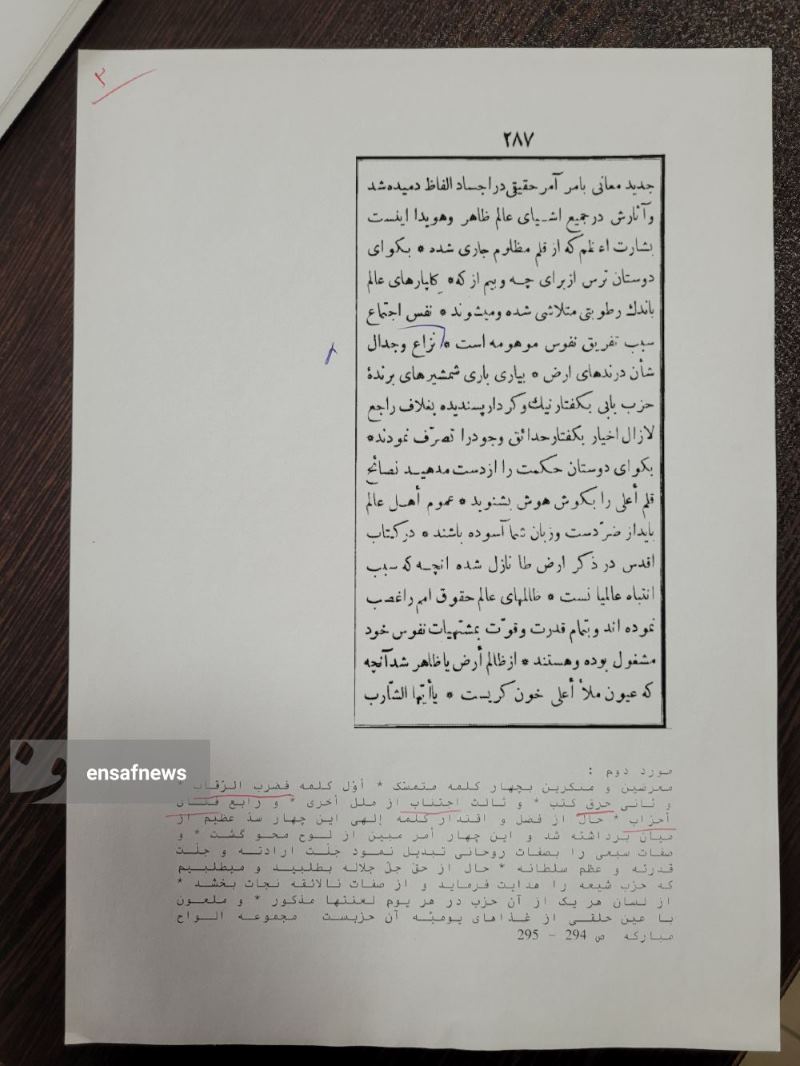 ۲
۲۸۷
جدید معانی بامر آمر حقیقی در اجساد الفاظ دمیده شد
و آثارش در جمیع اشیای عالم ظاهر وهویدا اینست
بشارت اعظم که از قلم مظلوم جاری شده * بکو ای
دوستان ترس از برای چه و بیم از که * کلپارهای عالم
باندك رطوبتی متلاشی شده ومیشوند * نفس اجتماع
سبب تفریق نفوس موهومه است * نزاع وجدال
شأن درندهای ارض * بیاری باری شمشیرهای برندهٔ
حزب بابی بکفتار نیك و کردار پسندیده بغلاف راجع
لازال اخیار بکفتار حدائق وجود را تصرّف نمودند *
بکو ای دوستان حکمت را از دست مدهید نصائح
قلم أعلی را بکوش هوش بشنوید * عموم أهل عالم
باید از ضرّ دست وزبان شما آسوده باشند * در کتاب
اقدس در ذکر ارض طا نازل شده انچه که سبب
انتباه عالمیانست * ظالمهای عالم حقوق امم را غصب
نموده اند و بتمام قدرت وقوّت بمشتهیات نفوس خود
مشغول بوده وهستند * از ظالم أرض یا ظاهر شد آنچه
که عیون ملأ أعلی خون کریست * یا أیّها الشّارب
مورد دوم :
معرضین و منکرین بچهار کلمه متمسّک * أوّل کلمه فضرب الرّقاب *
و ثانی حرق کتب * و ثالث اجتناب از ملل أخری * و رابع فنای
أحزاب * حال از فضل و اقتدار کلمه إلهی این چهار سدّ عظیم از
میان برداشته شد و این چهار أمر مبین از لوح محو گشت * و
صفات سبعی را بصفات روحانی تبدیل نمود جلّت ارادته و جلّت
قدرته و عظم سلطانه * حال از حق جلّ جلاله بطلبید و میطلبیم
که حزب شیعه را هدایت فرماید و از صفات نالائقه نجات بخشد *
از لسان هر یک از آن حزب در هر یوم لعنتها مذکور * و ملعون
با عین حلقی از غذاهای یومیّه آن حزبست مجموعه الواح
مبارکه ص 294 - 295
ensafnews